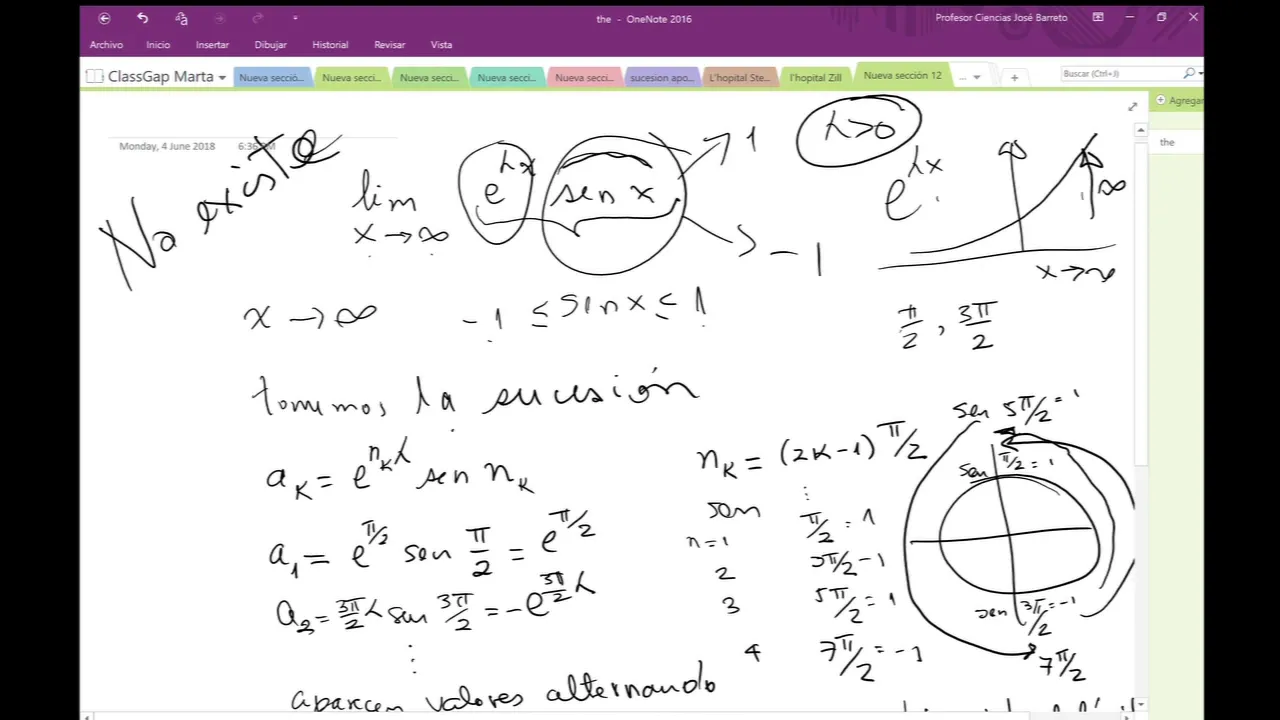 the - OneNote 2016
Profesor Ciencias José Barreto
Archivo Inicio Insertar Dibujar Historial Revisar Vista
ClassGap Marta
Nueva secció... Nueva secci... Nueva secci... Nueva secci... Nueva secci... sucesion apo... L'hopital Ste... l'hopital Zill Nueva sección 12 ...
Buscar (Ctrl+J)
Agregar
the
Monday, 4 June 2018 6:36 PM
No existe
lim x→∞ e^λx sen x
1
-1
λ>0
e^λx
∞
x→∞
x→∞ -1 ≤ sin x ≤ 1
π/2, 3π/2
tomemos la sucesión
a_K = e^n_Kλ sen n_K
n_K = (2K-1) π/2
sen
n=1 π/2 = 1
2 3π/2 -1
3 5π/2 = 1
4 7π/2 = -1
a_1 = e^π/2 sen π/2 = e^π/2
a_2 = 3π/2 λ sen 3π/2 = -e^3π/2 λ
⋮
sen 5π/2 = 1
sen π/2 = 1
sen 3π/2 = -1
7π/2
aparcen valores alternando